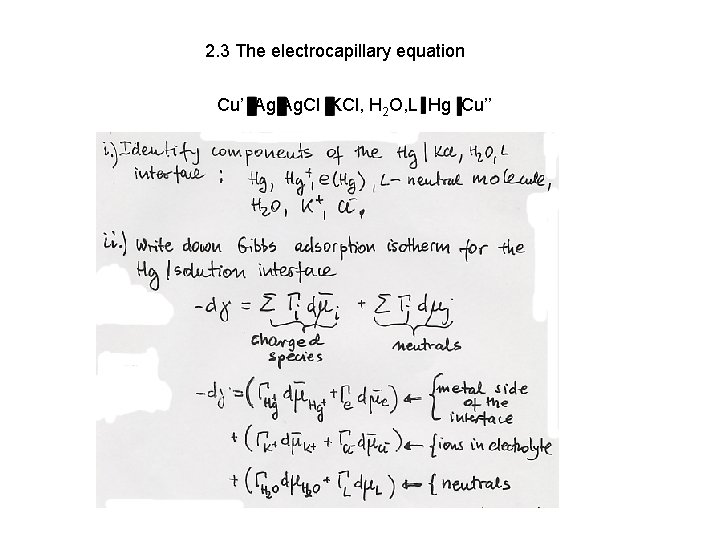 2.3 The electrocapillary equation
Cu’ Ag AgCl KCl, H2O, L Hg Cu’’
i.) Identify components of the Hg | KCl, H2O, L
interface : Hg, Hg⁺, e(Hg), L – neutral molecule,
H2O, K⁺, Cl⁻.
ii.) Write down Gibbs adsorption isotherm for the
Hg / solution interface
-dγ = Σ Γi dμ̄i + Σ Γj dμj
charged species neutrals
-dγ = (ΓHg⁺ dμ̄Hg⁺ + Γe dμ̄e) ← { metal side
of the
interface
+ (ΓK⁺ dμ̄K⁺ + ΓCl⁻ dμ̄Cl⁻) ← { ions in electrolyte
+ (ΓH2O dμH2O + ΓL dμL) ← { neutrals